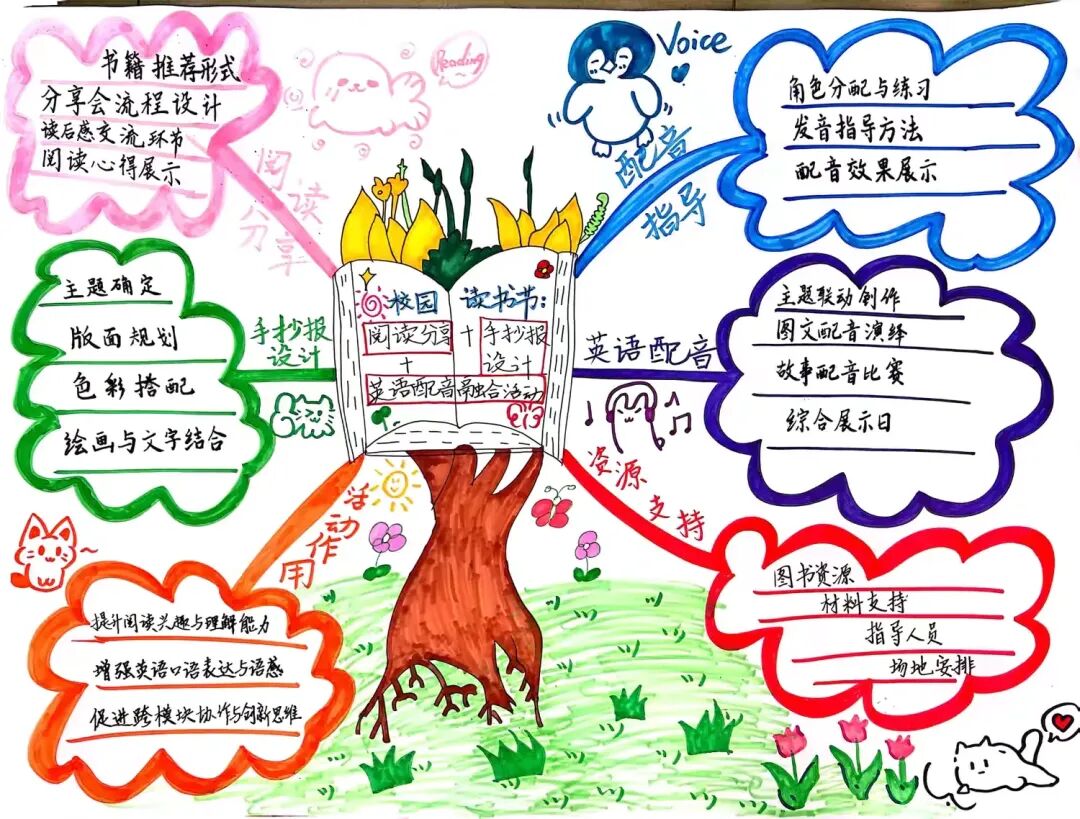 书籍推荐形式
分享会流程设计
读后感交流环节
阅读心得展示
阅读
分享
Reading
Voice
配音
指导
角色分配与练习
发音指导方法
配音效果展示
主题确定
版面规划
色彩搭配
绘画与文字结合
手抄报
设计
校园 读书节:
阅读分享 + 手抄报
设计
+
英语配音融合活动
英语配音
主题联动创作
图文配音演绎
故事配音比赛
综合展示日
活动作用
提升阅读兴趣与理解能力
增强英语口语表达与语感
促进跨模块协作与创新思维
资源支持
图书资源
材料支持
指导人员
场地安排